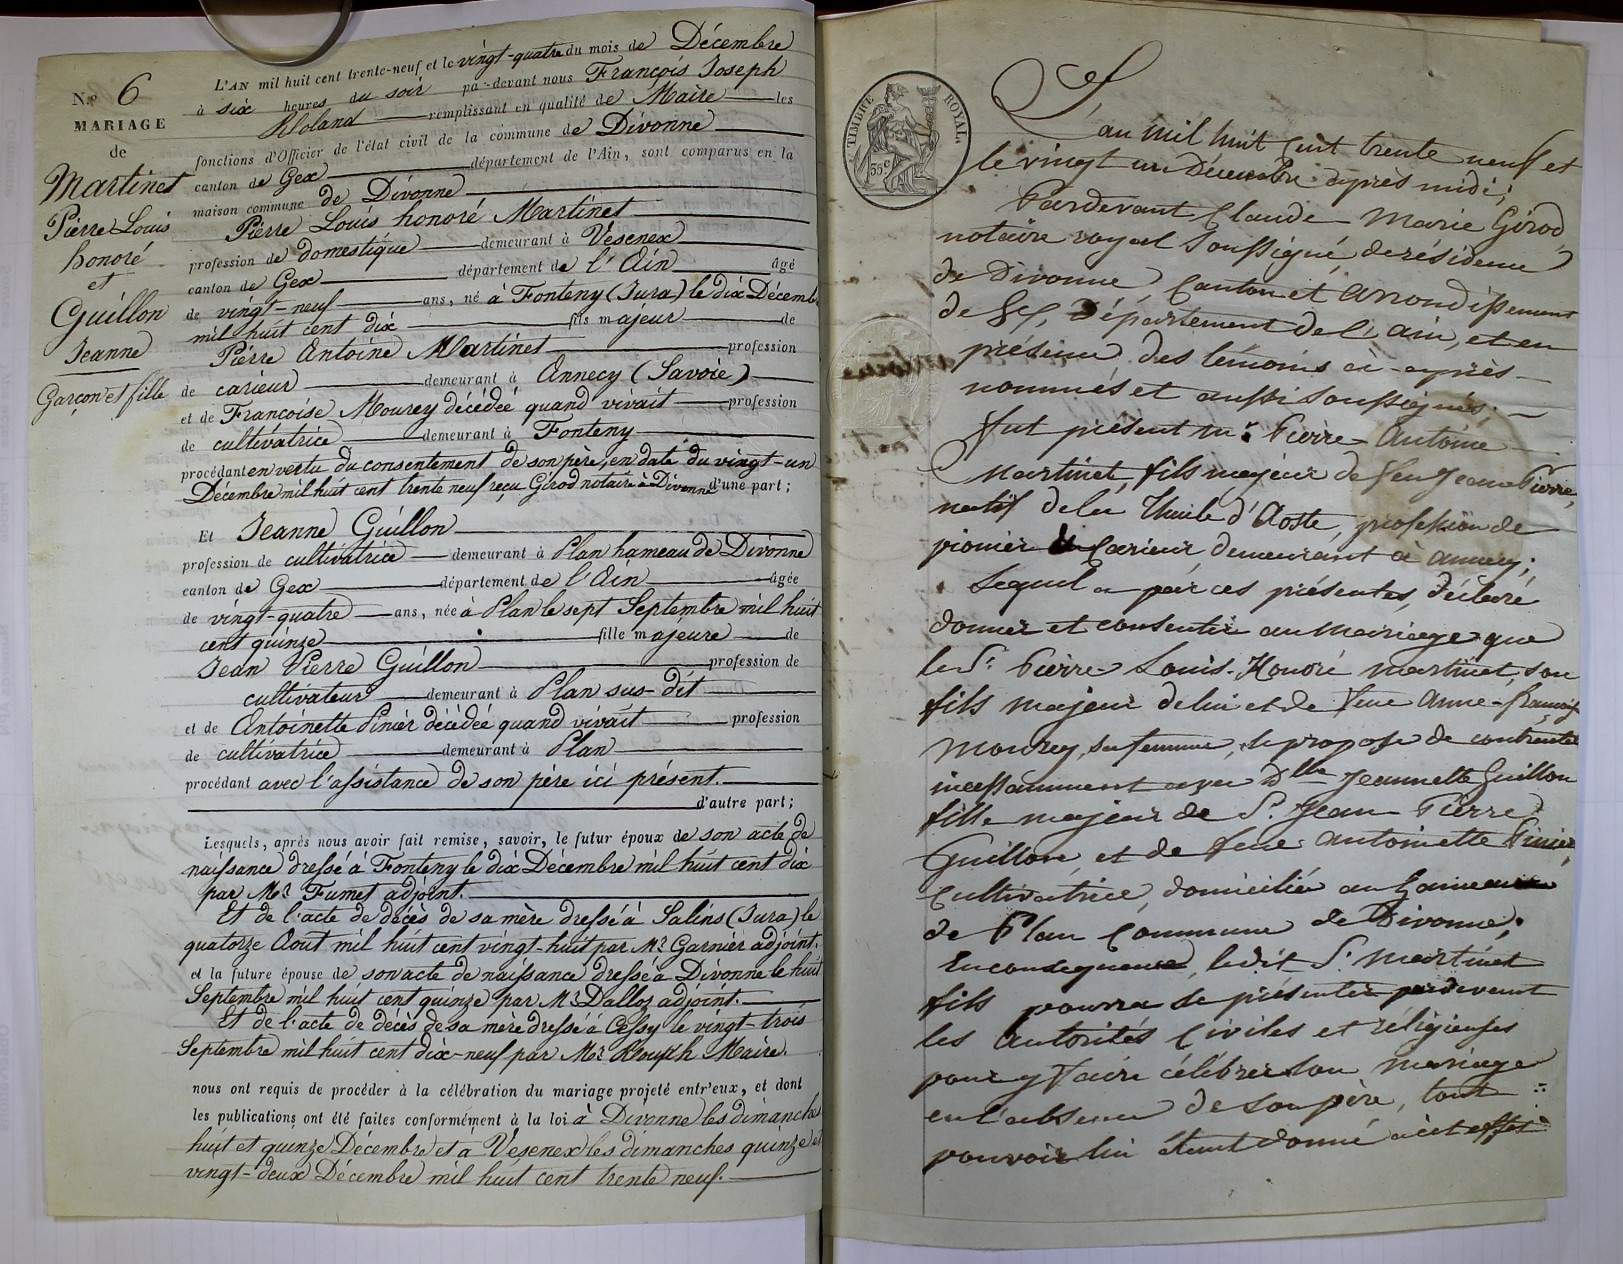 N.º 6
MARIAGE
de
Martinet
Pierre Louis
honoré
et
Guillon
Jeanne
Garçon et fille
L'AN mil huit cent trente-neuf et le vingt-quatre du mois de Décembre
à six heures du soir pa-devant nous François Joseph
Roland remplissant en qualité de Maire les
fonctions d'Officier de l'état civil de la commune de Divonne
canton de Gex département de l'Ain, sont comparus en la
maison commune de Divonne
Pierre Louis honoré Martinet
profession de domestique demeurant à Vesenex
canton de Gex département de l'Ain âgé
de vingt-neuf ans, né à Fonteny (Jura) le dix Décemb
mil huit cent dix fils majeur de
Pierre Antoine Martinet profession
de carieur demeurant à Annecy (Savoie)
et de Françoise Mourey décédée quand vivait profession
de cultivatrice demeurant à Fonteny
procédant en vertu du consentement de son père, en date du vingt-un
Décembre mil huit cent trente neuf reçu Girod notaire à Divonne d'une part;
Et Jeanne Guillon
profession de cultivatrice demeurant à Plan hameau de Divonne
canton de Gex département de l'Ain âgée
de vingt-quatre ans, née à Plan le sept Septembre mil huit
cent quinze fille majeure de
Jean Pierre Guillon profession de
cultivateur demeurant à Plan sus-dit
et de Antoinette Pinier décédée quand vivait profession
de cultivatrice demeurant à Plan
procédant avec l'assistance de son père ici présent.
d'autre part;
Lesquels, après nous avoir fait remise, savoir, le futur époux de son acte de
naissance dressé à Fonteny le dix Décembre mil huit cent dix
par Mr. Fumet adjoint.
Et de l'acte de décès de sa mère dressé à Salins (Jura) le
quatorze Aout mil huit cent vingt-huit par Mr. Garnier adjoint.
et la future épouse de son acte de naissance dressé à Divonne le huit
Septembre mil huit cent quinze par Mr. Dalloz adjoint.
Et de l'acte de décès de sa mère dressé à Cessy le vingt-trois
Septembre mil huit cent dix-neuf par Mr. Maire.
nous ont requis de procéder à la célébration du mariage projeté entr'eux, et dont
les publications ont été faites conformément à la loi à Divonne les dimanches
huit et quinze Décembre et a Vesenex les dimanches quinze et
vingt-deux Décembre mil huit cent trente neuf.
TIMBRE ROYAL
35c
L'an mil huit cent trente neuf et
le vingt un Décembre après midi;
Pardevant Claude Marie Girod
notaire royal soussigné, de résidence
de Divonne, canton et arrondissement
de Gex, Département de l'ain, et en
présence des témoins ci-après
nommés et aussi soussignés;
fut présent mr. Pierre Antoine
Martinet, fils majeur de feu Jean Pierre,
natif de la Thuile d'Aoste, profession de
pionier carieur, demeurant à annecy;
Lequel a par ces présentes, déclaré
donner et consentir au mariage que
le Sr. Pierre Louis-Honoré Martinet, son
fils majeur de lui et de feue Anne-françoise
mourey, sa femme, se propose de contracter
incessamment avec Dlle Jeannette Guillon
fille majeur de Sr. Jean Pierre
Guillon, et de feue Antoinette Pinier,
cultivatrice, domiciliée au hameau
de Plan commune de Divonne;
En conséquence, ledit Sr. Martinet
fils pourra se présenter pardevant
les autorités civiles et réligieuses
pour y faire célébrer son mariage
en l'absence de son père, tout
pouvoir lui étant donné à cet effet